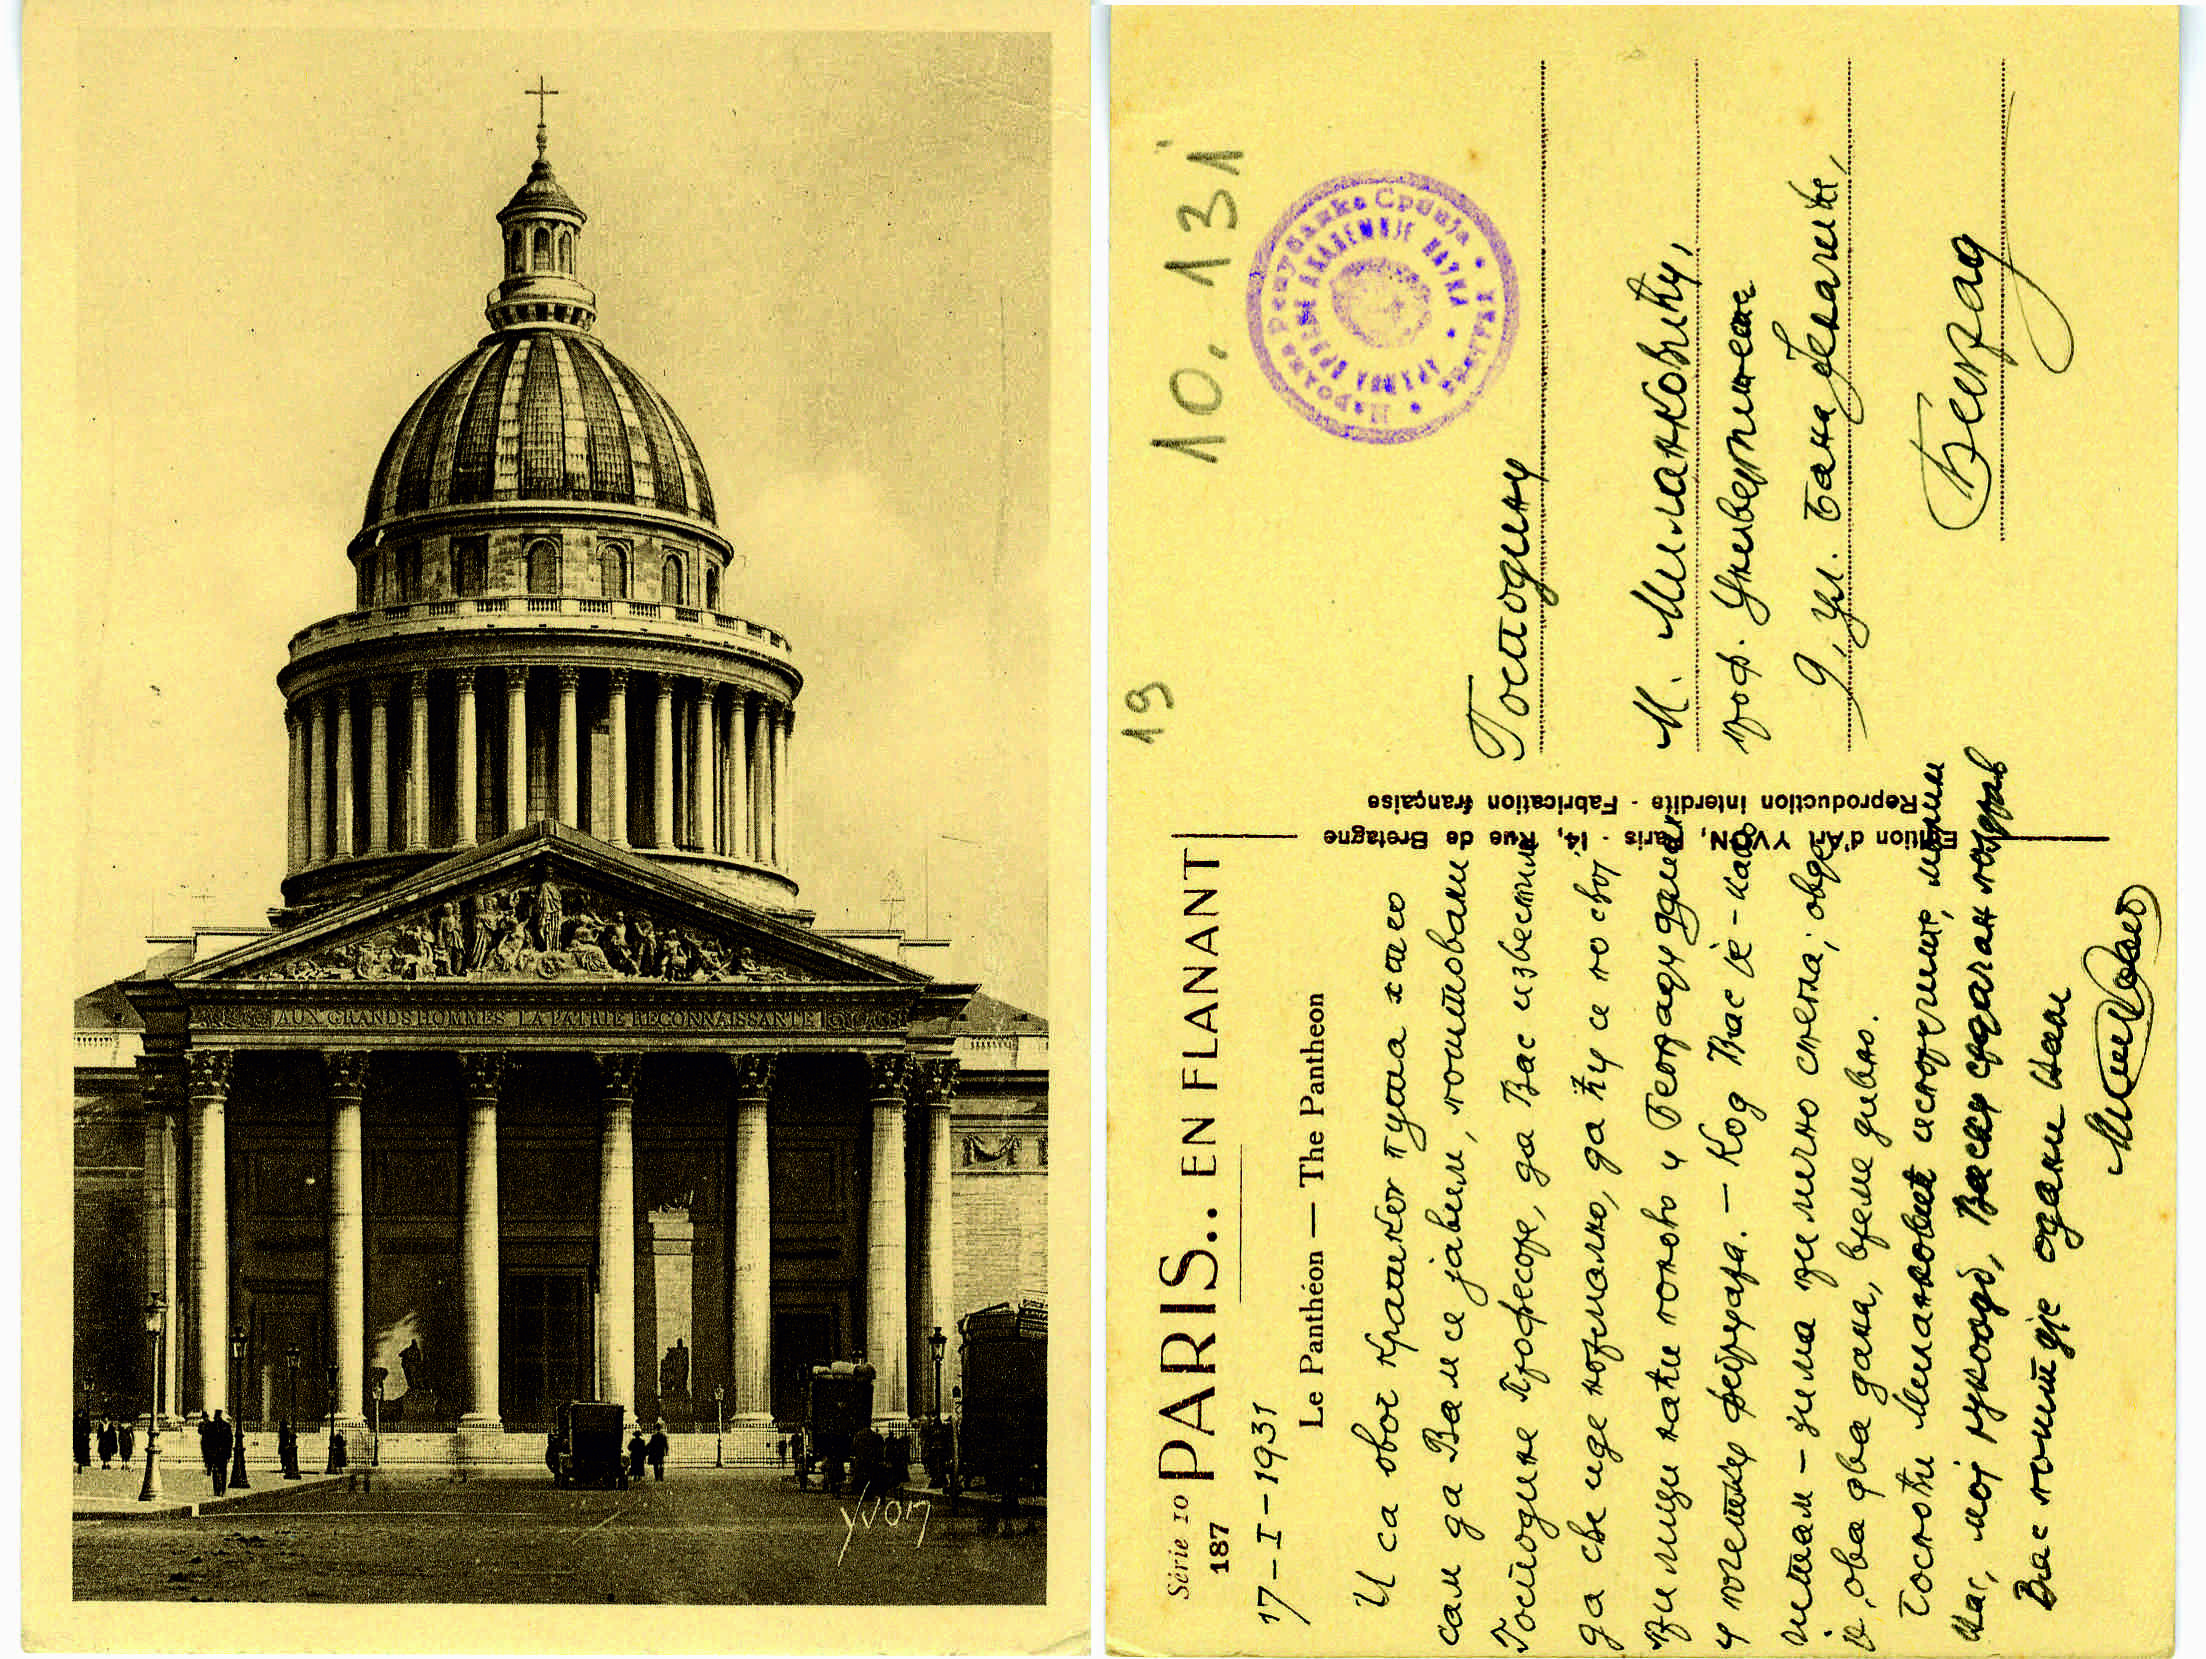 AUX GRANDS HOMMES LA PATRIE RECONNAISSANTE
YVON
19
10. 131
Série 10
187
PARIS.. EN FLANANT
17-I-1931
Le Panthéon — The Pantheon
И са овог кратког пута хтео
сам да Вам се јавим, поштовани
Господине Професоре, да Вас известим
да све иде нормално, да ћу се по свој
прилици наћи поново у Београду
у почетку фебруара. – Код Вас је – као
читам – зима прилично стегла; овде
је, ова два дана, време дивно.
Госпођи Миланковић
мој рукољуб, Васку срдачан поздрав
Вас поштује одани Вам
Edition d'Art YVON, Paris - 14, Rue de Bretagne
Reproduction interdite - Fabrication française
Народна Република Србија
СРПСКЕ АКАДЕМИЈЕ НАУКА
Господину
М. Миланковићу,
проф. Универзитета
9, ул. Бана Јелачића,
Београд